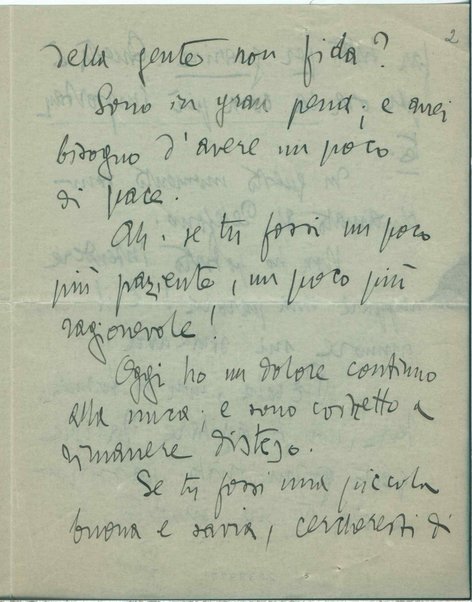 2
della gente non fida?
Sono in gran pena, e avrei
bisogno d'avere un poco
di pace.
Ah! se tu fossi un poco
più paziente, un poco più
ragionevole!
Oggi ho un dolore continuo
alla nuca, e sono costretto a
rimanere disteso.
Se tu fossi una piccola
buona e savia, cercheresti di